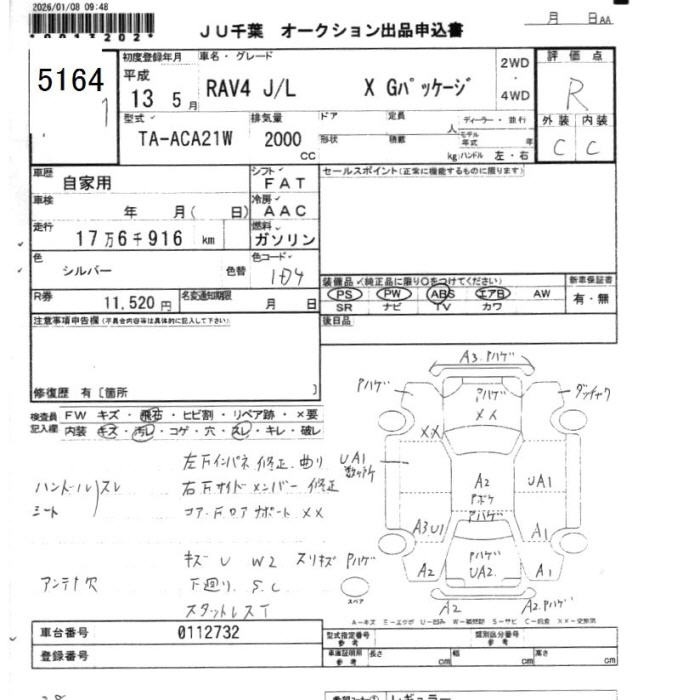 2026/01/08 09:48
月 日AA
JU千葉 オークション出品申込書
5164
初度登録年月
平成
13 5 月
車名・グレード
RAV4 J/L X Gパッケージ
2WD
・
4WD
評 価 点
R
型式
TA-ACA21W
排気量
2000
CC
ドア 定員
人
形状 積載
kg
ディーラー・並行
モデル年式 年
ハンドル 左・右
外装 内装
C C
車歴
自家用
シフト
FAT
セールスポイント(正常に機能するものに限ります)
車検
年 月( 日)
冷房
AAC
走行
17万6千916 km
燃料
ガソリン
色
シルバー
色替
色コード
1D4
装備品(純正品に限り○をつけてください)
PS PW ABS エアB AW
SR ナビ TV カワ
新車保証書
有・無
R券
11,520円
名変通知期限
月 日
注意事項申告欄(不具合内容等は具体的に記入して下さい)
後日品
修復歴 有[箇所 ]
検査員
記入欄
FW キズ・飛石・ヒビ割・リペア跡・×要
内装 キズ・汚レ・コゲ・穴・スレ・キレ・破レ
左Fインパネ 修正.曲り
ハンドルスレ
右Fサイドメンバー 修正
シート
コア.Fロアサポート ××
キズ U W2 スリキズ Pハゲ
アンテナ穴
下廻り. S.C
スタットレスT
A3.Pハゲ
Pハゲ
Pハゲ
××
××
UA1
A2
Pボケ
UA1
Pハゲ
A3.U1
A1
Pハゲ
UA2.
A2
A1
A2
A2.Pハゲ
スペア
A-キズ E-エクボ U-凹み W-補修跡 S-サビ C-腐食 XX-交換済
車台番号
0112732
型式指定番号
参考
類別区分番号
参考
登録番号
車庫証明用
参考
長さ
cm
幅
cm
高さ
cm
レギュラー